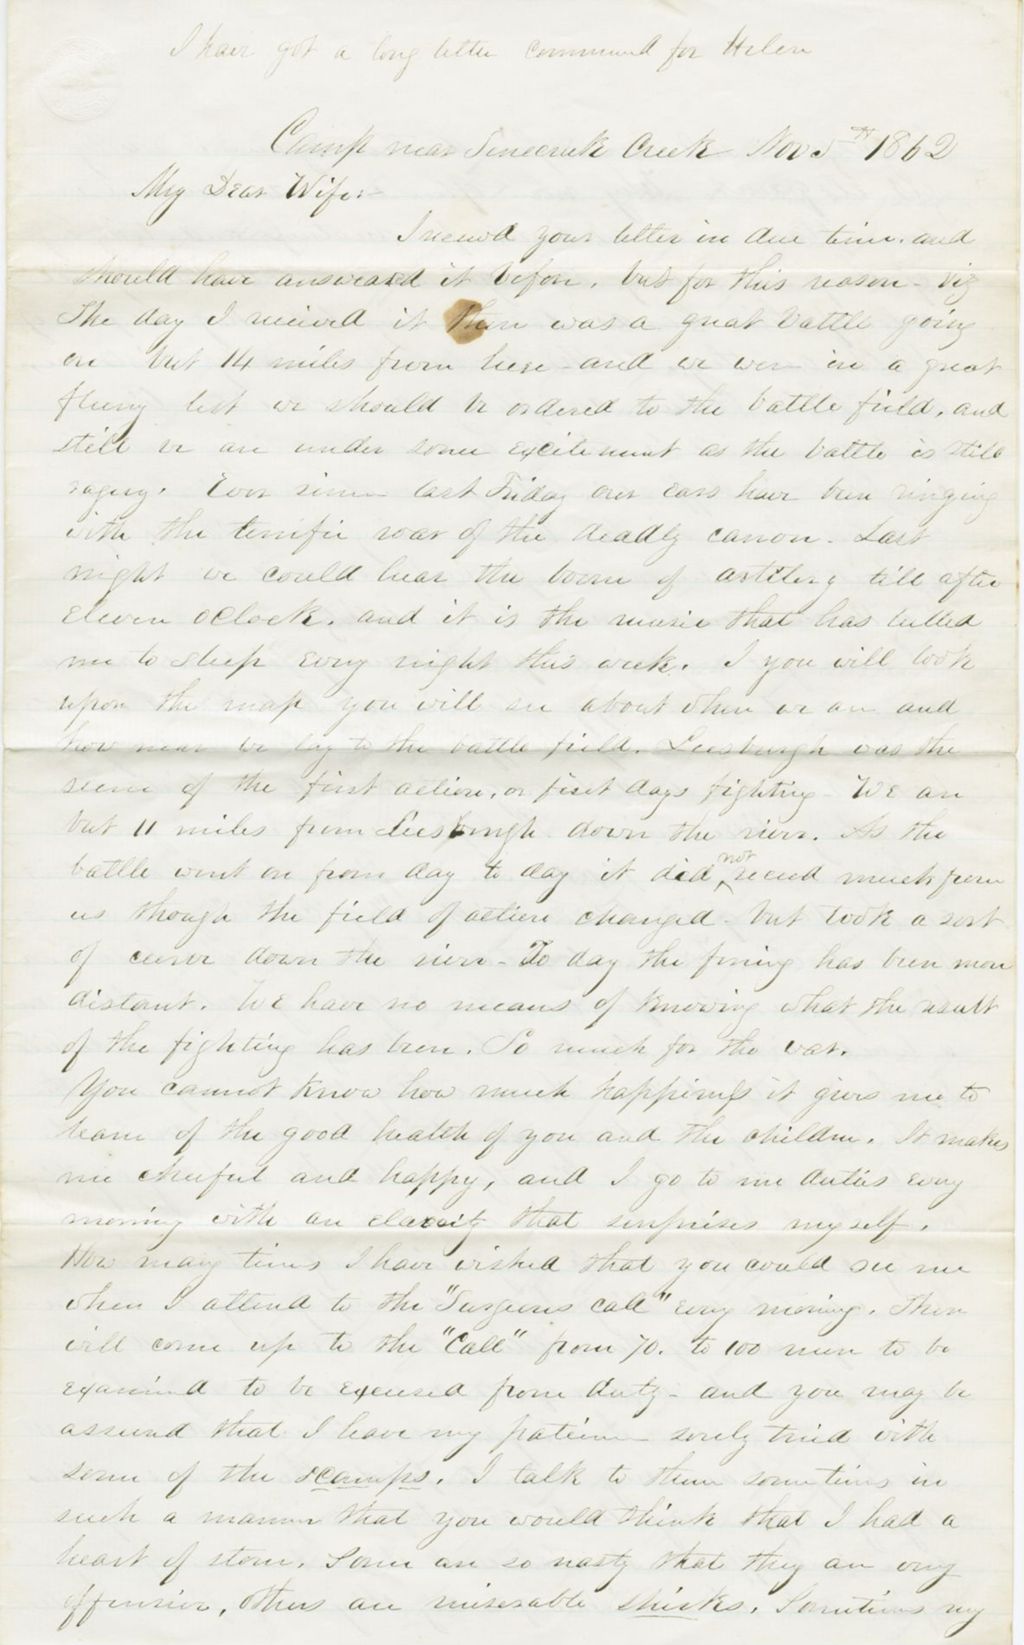 I have got a long letter commenced for Helen
Camp near Senecreek Creek Nov 5th 1862
My Dear Wife:-
I received your letter in due time. and
should have answeared it before, but for this reason - viz
The day I received it there was a great battle going
on but 14 miles from here - and we were in a great
flurry lest we should be ordered to the battle field, and
still we are under some excitement as the battle is still
raging. Ever since last Friday our ears have been ringing
with the terrific roar of the deadly canon. Last
night we could hear the boom of artilery till after
eleven oClock. and it is the music that has lulled
me to sleep every night this week. I you will look
upon the map you will see about where we are and
how near we lay to the battle field. Leesburgh was the
scene of the first action, or first days fighting - We are
but 11 miles from Leesburgh down the river. As the
battle went on from day to day it did not receed much from
us though the field of action changed - but took a sort
of curve down the river - To day the firing has been more
distant. We have no means of knowing what the result
of the fighting has been. So much for the war.
You cannot know how much happiness it gives me to
learn of the good health of you and the children. It makes
me cheerful and happy, and I go to me duties every
morning with an elacity that surprises myself.
How many times I have wished that you could see me
when I attend to the "Surgeons call" every morning. There
will come up to the "Call" from 70. to 100 men to be
examined to be excused from duty - and you may be
assured that I have my patience sorely tried with
some of the scamps. I talk to them sometimes in
such a manner that you would think that I had a
heart of stone. Some are so nasty that they are very
offensive, others are miserable shirks. Sometimes my